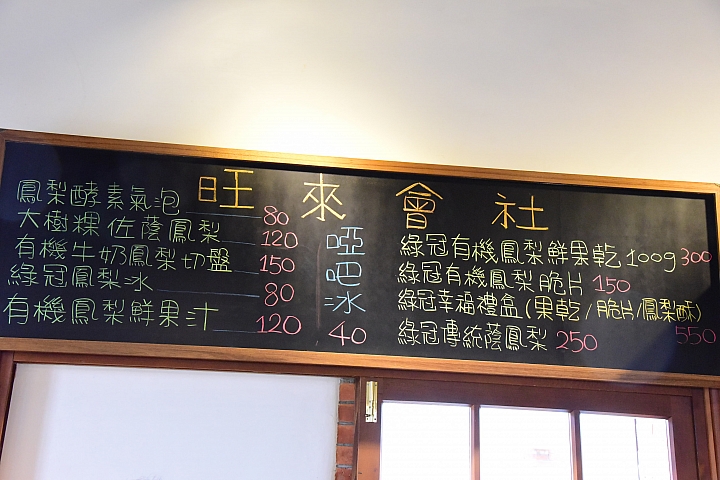 旺來會社
鳳梨酵素氣泡 80
大樹粿佐蔭鳳梨 120
有機牛奶鳳梨切盤 150
綠冠鳳梨冰 80
有機鳳梨鮮果汁 120
啞吧冰 40
綠冠有機鳳梨鮮果乾100g 300
綠冠有機鳳梨脆片 150
綠冠幸福禮盒(果乾/脆片/鳳梨酥) 550
綠冠傳統蔭鳳梨 250